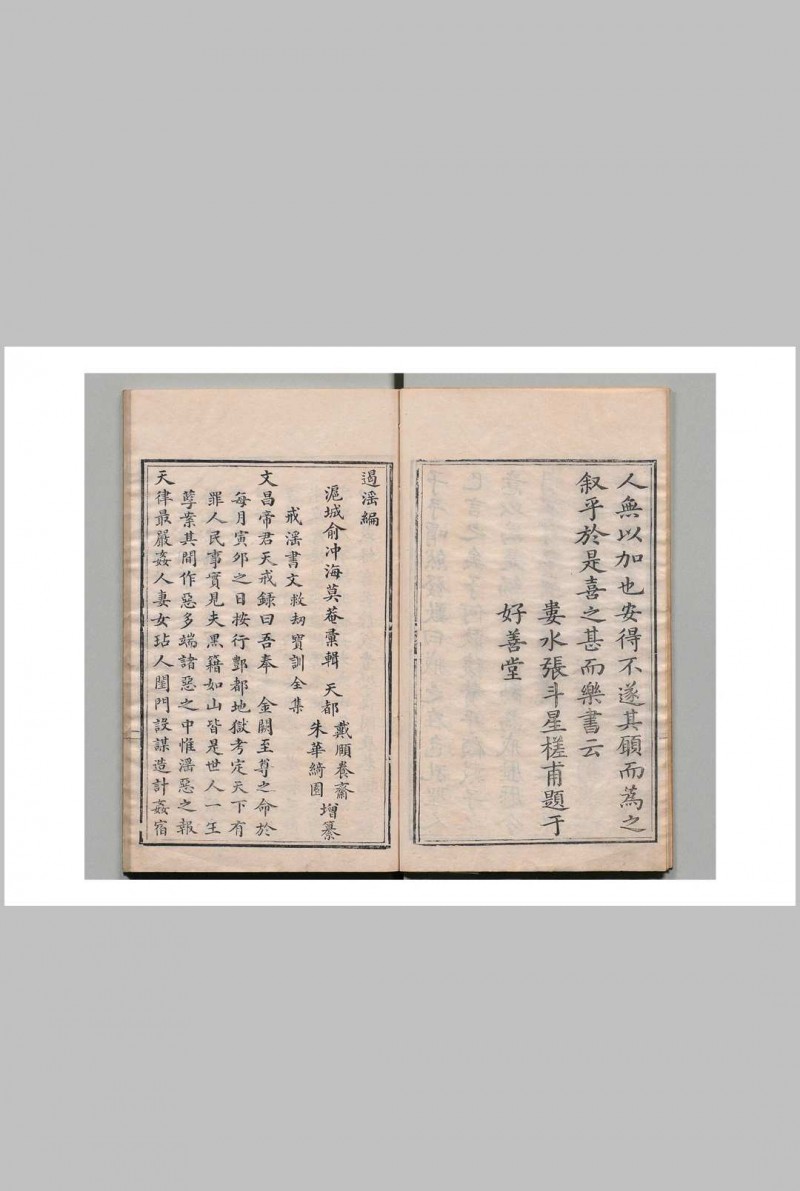 人無以加也安得不遂其願而為之
叙乎於是喜之甚而樂書云
婁水張斗星槎甫題于
好善堂
遏淫編
滬城俞冲海莫菴彙輯 天都 戴願養齋 朱華綺園 增纂
戒淫書文救刼寶訓全集
文昌帝君天戒録曰吾奉 金闕至尊之命於
每月寅夘之日按行酆都地獄考定天下有
罪人民事實見夫黑籍如山皆是世人一生
孽案其間作惡多端諸惡之中惟淫惡之報
天律最嚴姦人妻女玷人閨門設謀造計姦宿